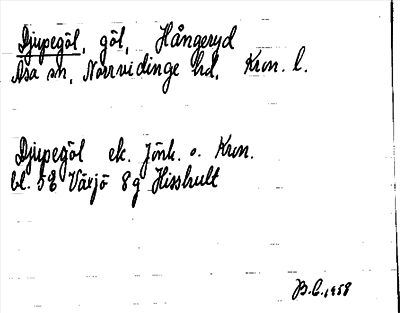 Djupegöl, göl, Hångeryd
Asa sn, Norrvidinge hd, Kron. l.
Djupegöl ek. Jönk. o. Kron.
bl. 5E Växjö 8g Hisshult
B.C. 1958